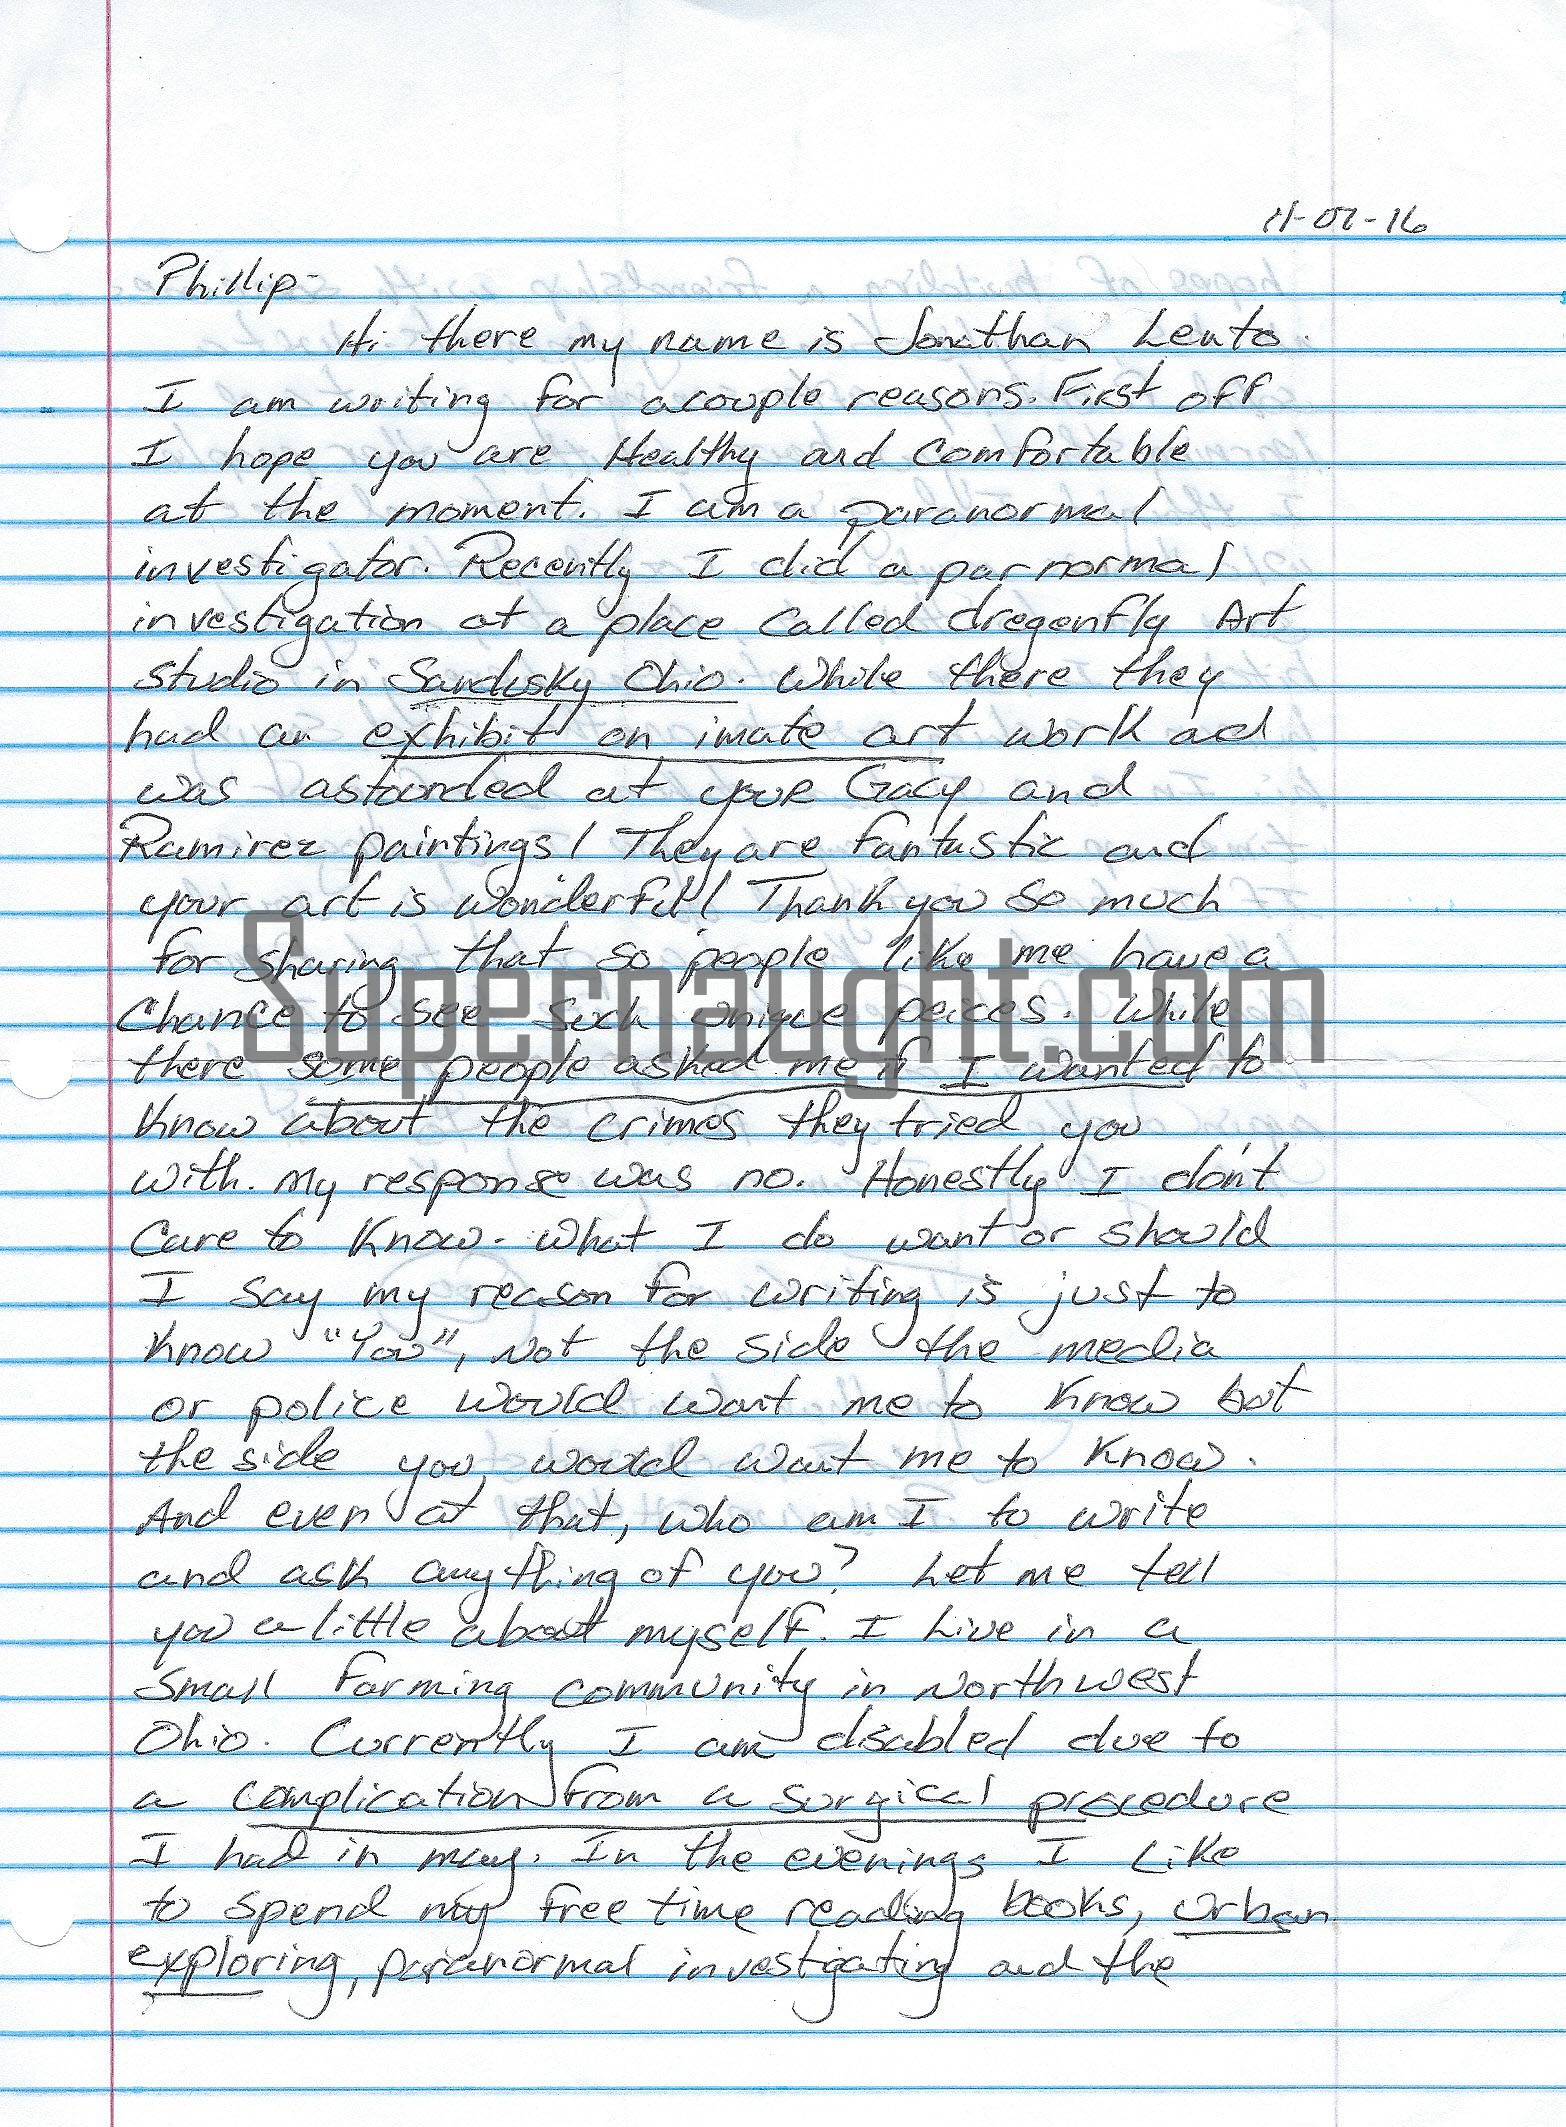 11-07-16
Phillip-
Hi there my name is Jonathan Lento.
I am writing for acouple reasons. First off
I hope you are Healthy and comfortable
at the moment. I am a paranormal
investigator. Recently I did a parnormal
investigation at a place called dregenfly Art
studio in Sandusky Ohio. While there they
had an exhibit on imate art work ad
was astounded at your Gacy and
Ramirez paintings! They are fantastic and
your art is wonderful! Thank you so much
for sharing that so people like me have a
Chance to see such unique peices. While
Supernaught.com
there some people asked me if I wanted to
know about the crimes they tried you
with. My response was no. Honestly I don't
Care to know. What I do want or should
I say my reason for writing is just to
know "You", Not the side the media
or police would want me to know but
the side you would want me to know.
And even at that, who am I to write
and ask anything of you? Let me tell
you a little about myself. I Live in a
small farming community in Northwest
Ohio. Currently I am disabled due to
a complication from a surgical procedure
I had in may. In the evenings I Like
to spend my free time reading books, urban
exploring, paranormal investigating and the